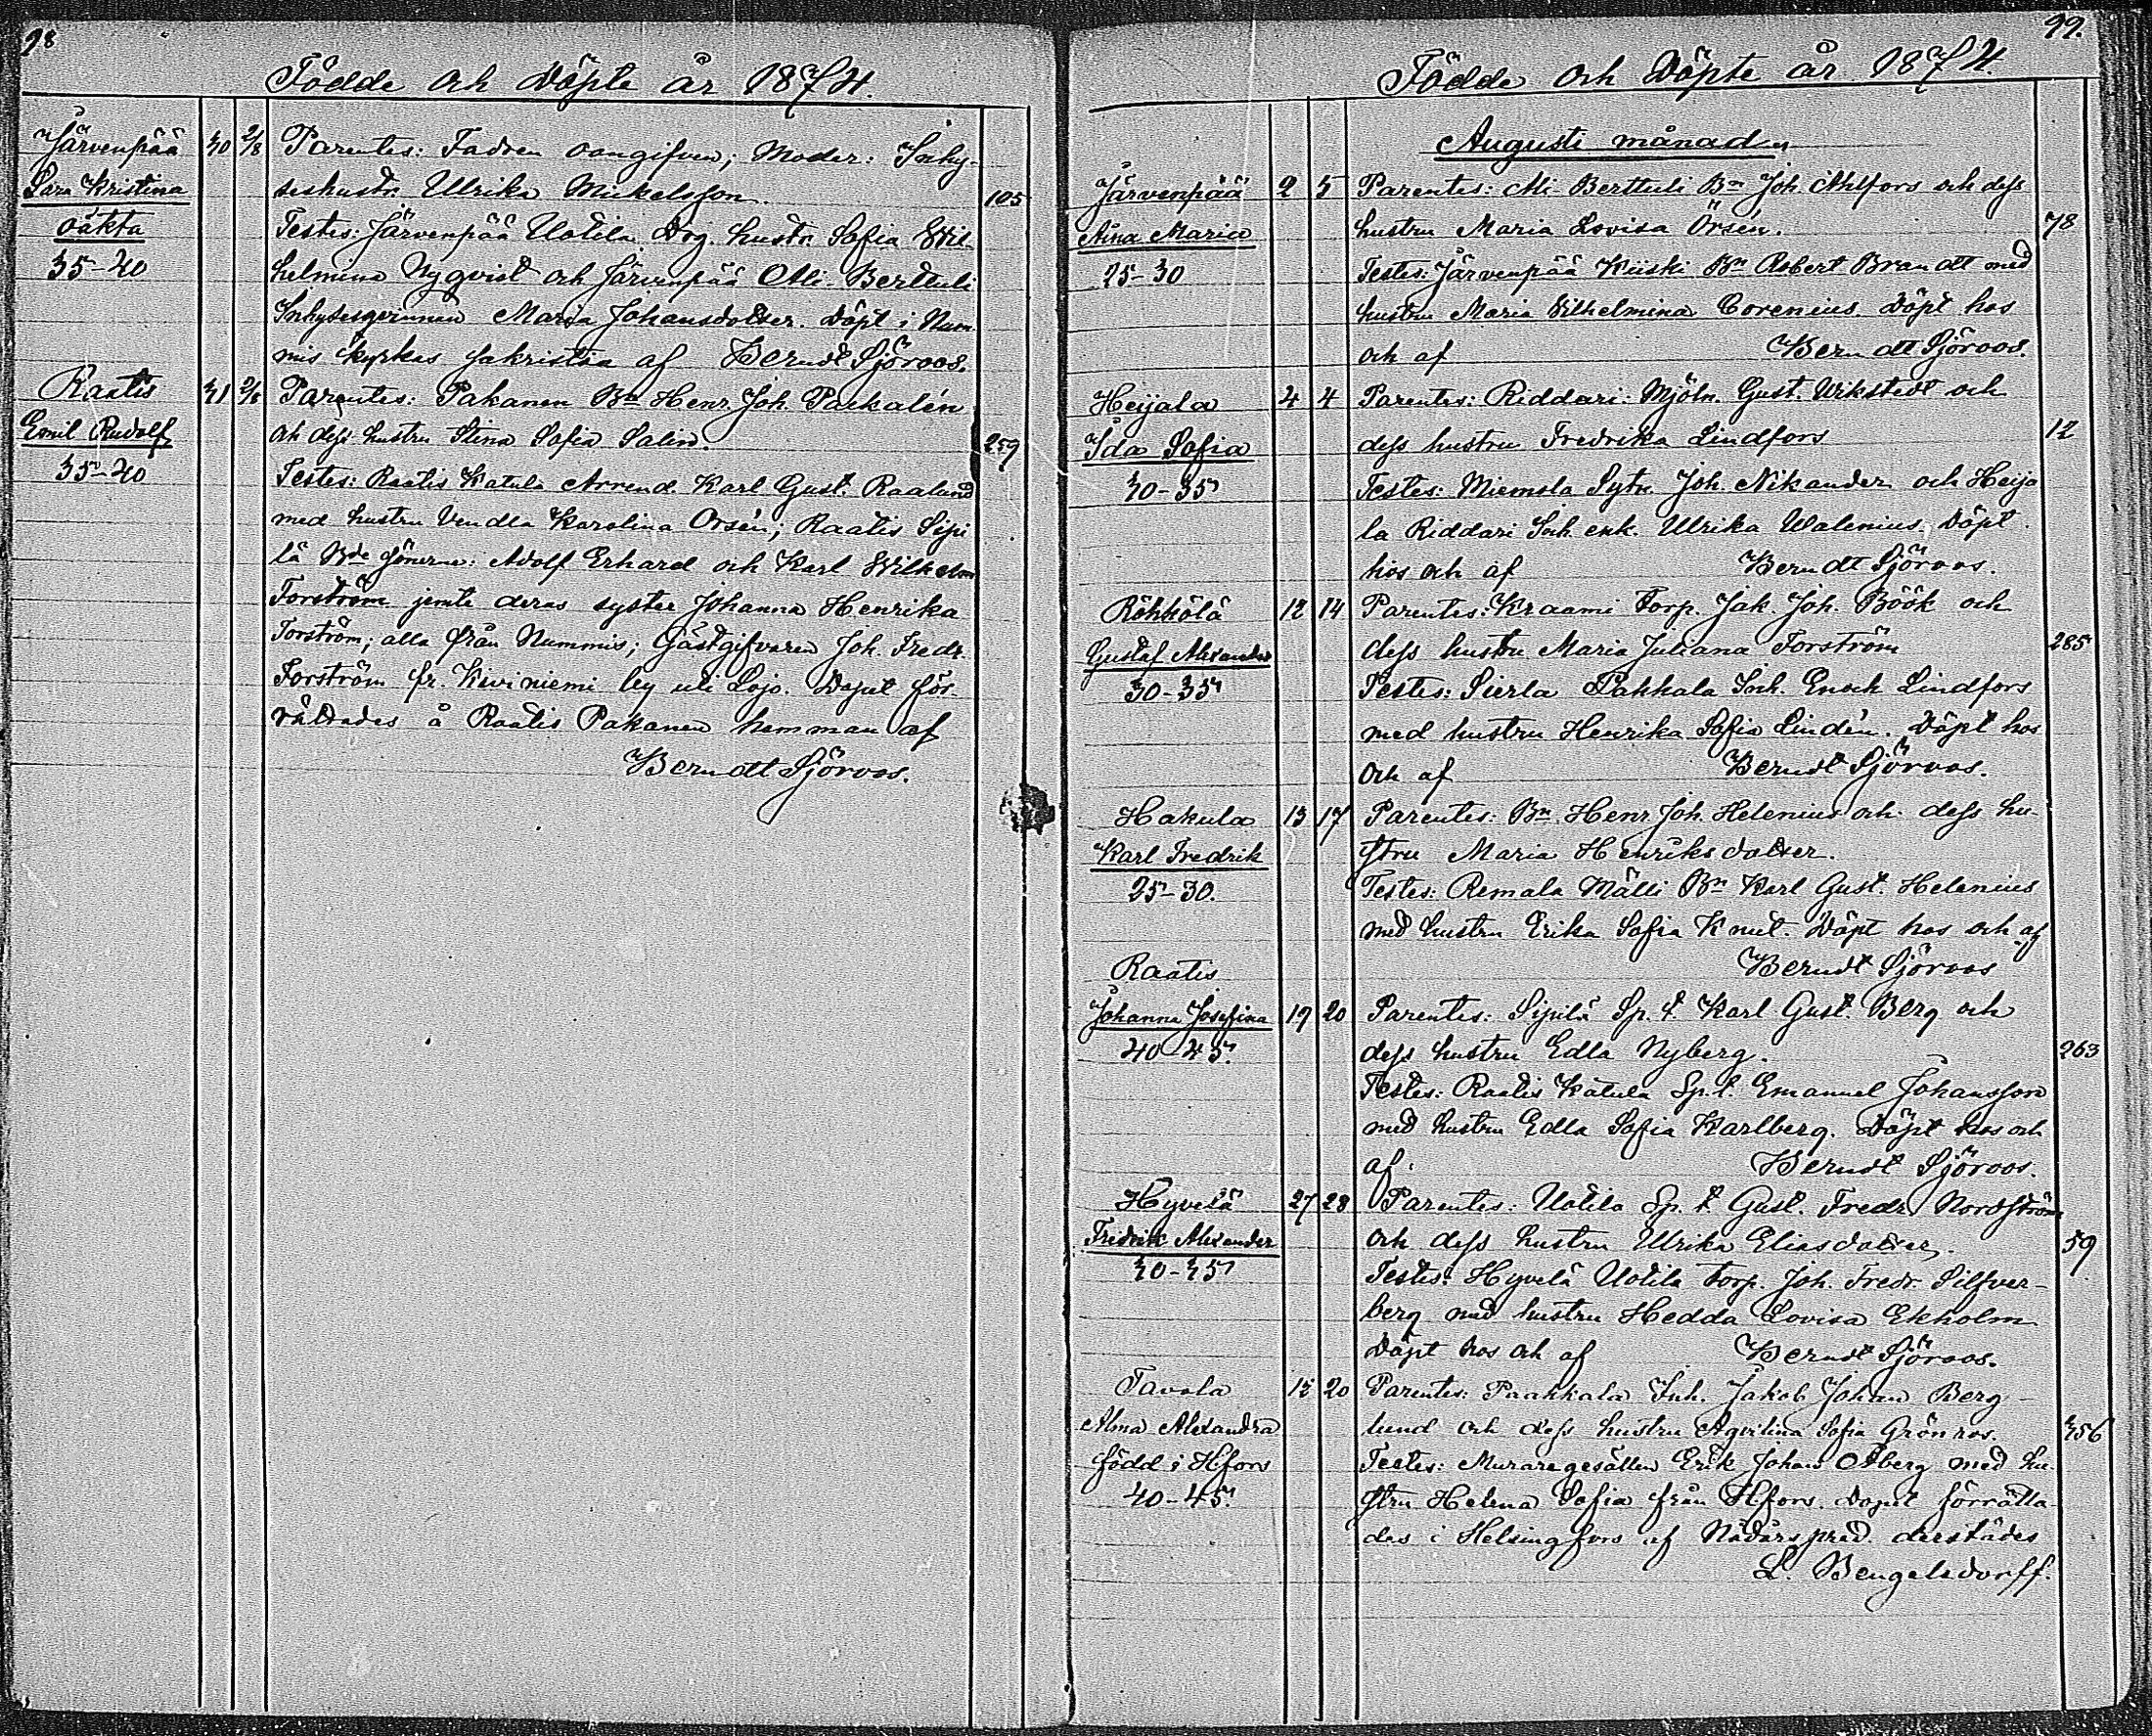 98
Födde och Döpte år 1874.
Järvenpää 30 2/8 Parentes: Fadren oangifven; Moder: Inhy-
Sara Kristina seshustr. Ulrika Mickelsson. 105
oäkta Testes: Järvenpää Uotila Drg. hustr. Sofia Wil-
35-40 helmina Nyqvist och Järvenpää Ali-Berttuli
Inhysesqvinnan Maria Johansdotter. Döpt i Num-
mis kyrkas sakristia af Berndt Sjöroos.
Raatis 31 2/8 Parentes: Pakanen Bn Henr. Joh. Packalén
Emil Rudolf och dess hustru Stina Sofia Salin. 259
35-40 Testes: Raatis Katula Arrend. Karl Gust. Raalund
med hustru Vendla Karolina Orsén; Raatis Sipi
lä Bde sönerne: Adolf Erhard och Karl Wilhelm
Forström jemte deras syster Johanna Henrika
Forström; alla från Nummis; Gästgifvaren Joh. Fredr.
Forström fr. Kiviniemi by uti Lojo. Dopet för-
rättades å Raatis Pakanen hemman af
Berndt Sjöroos.
99.
Födde och Döpte år 1874.
Augusti månad
Järvenpää 2 5 Parentes: Ali-Berttuli Bn Joh. Ahlfors och dess
Aina Maria hustru Maria Lovisa Örsén. 78
25-30 Testes: Järvenpää Kiiski Bn Robert Brandt med
hustru Maria Vilhelmina Corenius. Döpt hos
och af Berndt Sjöroos.
Heijala 2 4 Parentes: Riddari: Mjöln. Gust. Wikstedt och
Ida Sofia dess hustru Fredrika Lindfors 12
30-35 Testes: Miemola Sytn. Joh. Nikander och Heija
la Riddari Inh. enk. Ulrika Walenius. Döpt
hos och af Berndt Sjöroos.
Röhkölä 12 14 Parentes: Kraami Torp. Jak. Joh. Böök och
Gustaf Alexander dess hustru Maria Juliana Forström 285
30-35 Testes: Sierla Pakkala Inh. Enoch Lindfors
med hustru Henrika Sofia Lindén. Döpt hos
och af Berndt Sjöroos.
Hakula 13 17 Parentes: Bn. Henr. Joh. Helenius och dess hu-
Karl Fredrik stru Maria Henriksdotter.
25-30. Testes: Remala Mälli Bn Karl Gust. Helenius
med hustru Erika Sofia Knut. Döpt hos och af
Berndt Sjöroos
Raatis
Johanna Josefina 19 20 Parentes: Sipilä Sp. t. Karl Gust. Berg och
40-45. dess hustru Edla Nyberg. 263
Testes: Raatis Katula Sp. t. Emanuel Johansson
med hustru Edla Sofia Karlberg. Döpt hos och
af Berndt Sjöroos.
Hyvelä 27 28 Parentes: Uotila Sp. t. Gust. Fredr. Nordström
Fredrik Alexander och dess hustru Ulrika Eliasdotter. 59
40-45 Testes: Hyvelä Uotila Torp. Joh. Fredr. Silfver-
berg med hustru Hedda Lovisa Ekholm
Döpt hos och af Berndt Sjöroos.
Tavola 12 20 Parentes: Paakkala Inh. Jakob Johan Berg-
Alma Alexandra lund och dess hustru Aqvilina Sofia Grönros. 356
född i Hfors Testes: Muraregesällen Erik Johan Åberg med hu-
40-45. stru Helena Sofia från Hfors. Dopet förrätta-
des i Helsingfors af Nådårspred. derstädes
L. Bengelsdorff.